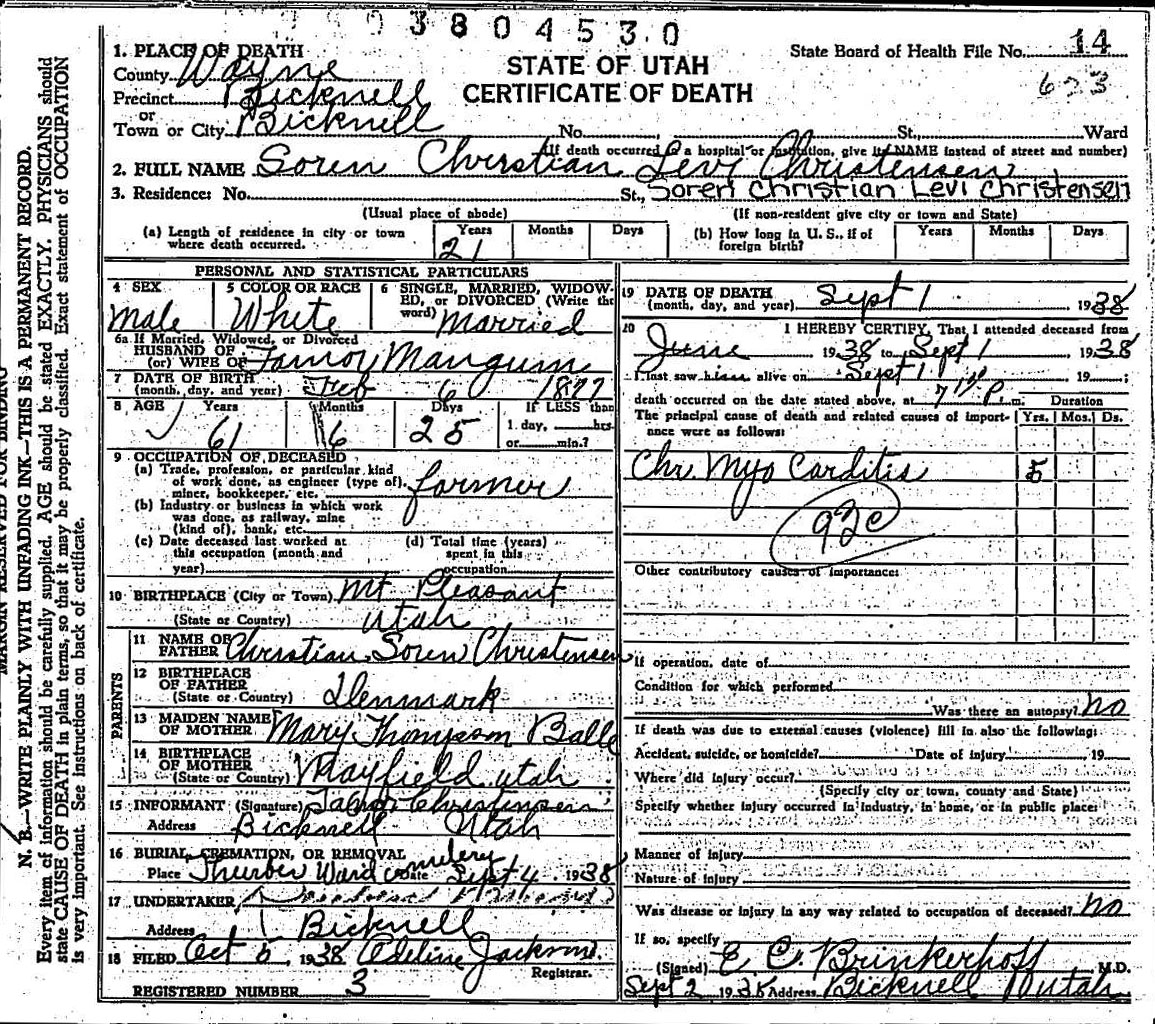 3804530
1. PLACE OF DEATH
State Board of Health File No. 14
County Wayne
STATE OF UTAH
CERTIFICATE OF DEATH
623
Precinct Bicknell
or
Town or City Bicknell No. St. Ward
(If death occurred in a hospital or institution, give its NAME instead of street and number)
2. FULL NAME Soren Christian Levi Christensen
3. Residence: No. St., Soren Christian Levi Christensen
(Usual place of abode) (If non-resident give city or town and State)
(a) Length of residence in city or town where death occurred. Years 21 Months Days
(b) How long in U. S., if of foreign birth? Years Months Days
PERSONAL AND STATISTICAL PARTICULARS
4 SEX Male
5 COLOR OR RACE White
6 SINGLE, MARRIED, WIDOWED, or DIVORCED (Write the word) Married
6a If Married, Widowed, or Divorced
HUSBAND OF
(or) WIFE OF Mangum
7 DATE OF BIRTH
(month, day, and year) Feb 6 1877
8 AGE Years 61 Months 6 Days 25
If LESS than
1 day, hrs.
or min.?
9 OCCUPATION OF DECEASED
(a) Trade, profession, or particular kind
of work done, as engineer (type of),
miner, bookkeeper, etc. farmer
(b) Industry or business in which work
was done, as railway, mine
(kind of), bank, etc.
(c) Date deceased last worked at
this occupation (month and
year)
(d) Total time (years)
spent in this
occupation
10 BIRTHPLACE (City or Town) Mt Pleasant
(State or Country) Utah
PARENTS
11 NAME OF
FATHER Christian Soren Christensen
12 BIRTHPLACE
OF FATHER
(State or Country) Denmark
13 MAIDEN NAME
OF MOTHER Mary Thompson Balle
14 BIRTHPLACE
OF MOTHER
(State or Country) Mayfield Utah
15 INFORMANT (Signature) Christensen
Address Bicknell Utah
16 BURIAL, CREMATION, OR REMOVAL
Place Thurber Ward cemetery Date Sept 4 1938
17 UNDERTAKER
Address Bicknell
18 FILED Oct 6, 1938 Adeline Jackson
Registrar.
REGISTERED NUMBER 3
19 DATE OF DEATH
(month, day, and year) Sept 1 1938
20 I HEREBY CERTIFY, That I attended deceased from
June 1938 to Sept 1 1938
I last saw him alive on Sept 1 19 ;
death occurred on the date stated above, at P. m. Duration
The principal cause of death and related causes of importance were as follows: Yrs. Mos. Ds.
Chr. Myo Carditis 5
92c
Other contributory causes of importance:
If operation, date of
Condition for which performed
Was there an autopsy? No
If death was due to external causes (violence) fill in also the following:
Accident, suicide, or homicide? Date of injury 19
Where did injury occur?
(Specify city or town, county and State)
Specify whether injury occurred in industry, in home, or in public place:
Manner of injury
Nature of injury
Was disease or injury in any way related to occupation of deceased? No
If so, specify
(Signed) E C Brinkerhoff M.D.
Sept 2 1938 Address Bicknell Utah
MARGIN RESERVED FOR BINDING
N. B.—WRITE PLAINLY WITH UNFADING INK—THIS IS A PERMANENT RECORD.
Every item of information should be carefully supplied. AGE should be stated EXACTLY. PHYSICIANS should
state CAUSE OF DEATH in plain terms, so that it may be properly classified. Exact statement of OCCUPATION
is very important. See instructions on back of certificate.